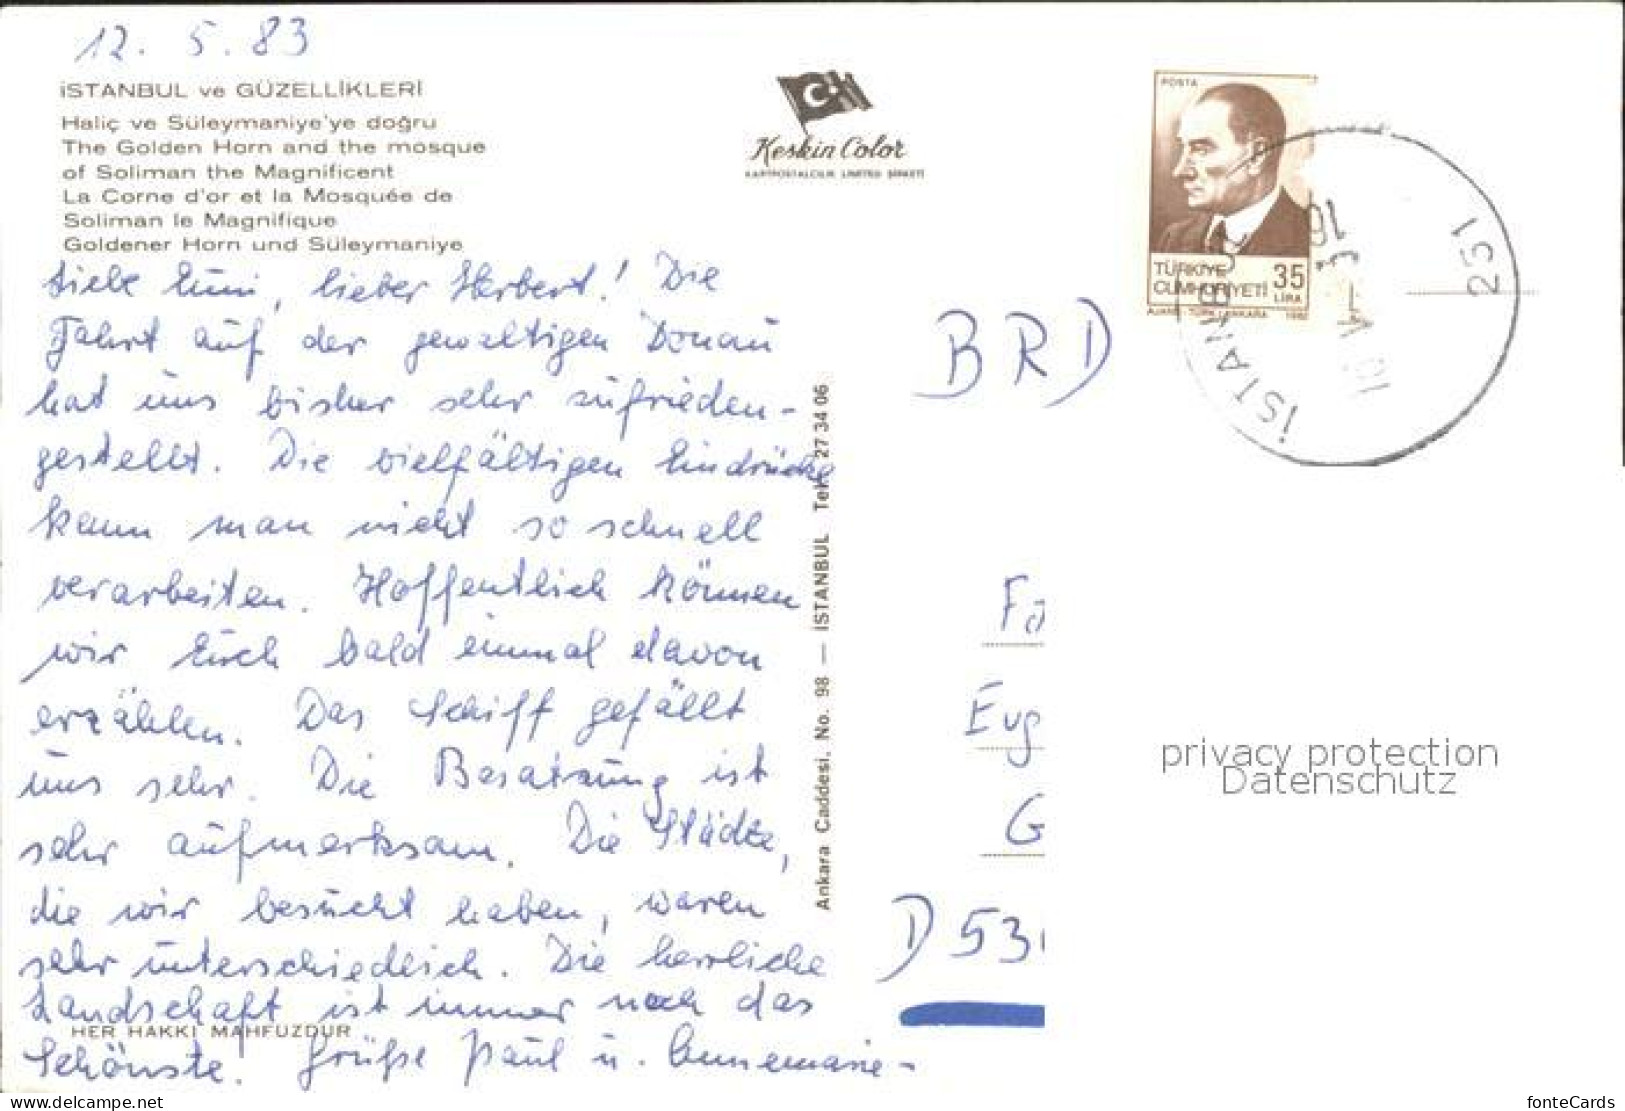 12. 5. 83
İSTANBUL ve GÜZELLİKLERİ
Haliç ve Süleymaniye'ye doğru
The Golden Horn and the mosque
of Soliman the Magnificent
La Corne d'or et la Mosquée de
Soliman le Magnifique
Goldener Horn und Süleymaniye
Liebe Enni, lieber Herbert! Die
Fahrt auf der gewaltigen Donau
hat uns bisher sehr zufrieden-
gestellt. Die vielfältigen Eindrücke
kann man nicht so schnell
verarbeiten. Hoffentlich können
wir Euch bald einmal davon
erzählen. Das Schiff gefällt
uns sehr. Die Besatzung ist
sehr aufmerksam. Die Städte,
die wir besucht haben, waren
sehr unterschiedlich. Die herrliche
Landschaft ist immer noch das
HER HAKKI MAHFUZDUR
Schönste. Grüße Paul u. Annemarie -
Keskin Color
KARTPOSTALCILIK LIMITED ŞİRKETİ
Ankara Caddesi, No. 98 — İSTANBUL Tel. 27 34 06
POSTA
TÜRKİYE
CUMHURİYETİ
35
LİRA
1982
İSTANBUL
251
BRD
Fa
Eug
G
D 53
privacy protection
Datenschutz
your-motif-in-the-world.com
fonteCards